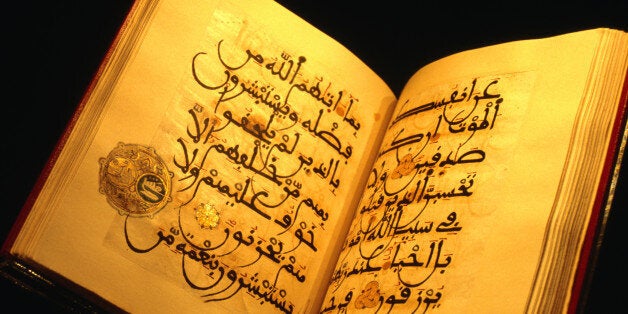 عن أنفسكم
الموت إن كنتم
صدقين ولا
تحسبن الذين قتلوا
في سبيل الله أموتا
بل أحياء عند
ربهم يرزقون فرحين
بما ءاتيهم الله من
فضله ويستبشرون
بالذين لم يلحقوا
بهم من خلفهم ألا
خوف عليهم ولا
هم يحزنون
يستبشرون بنعمة من